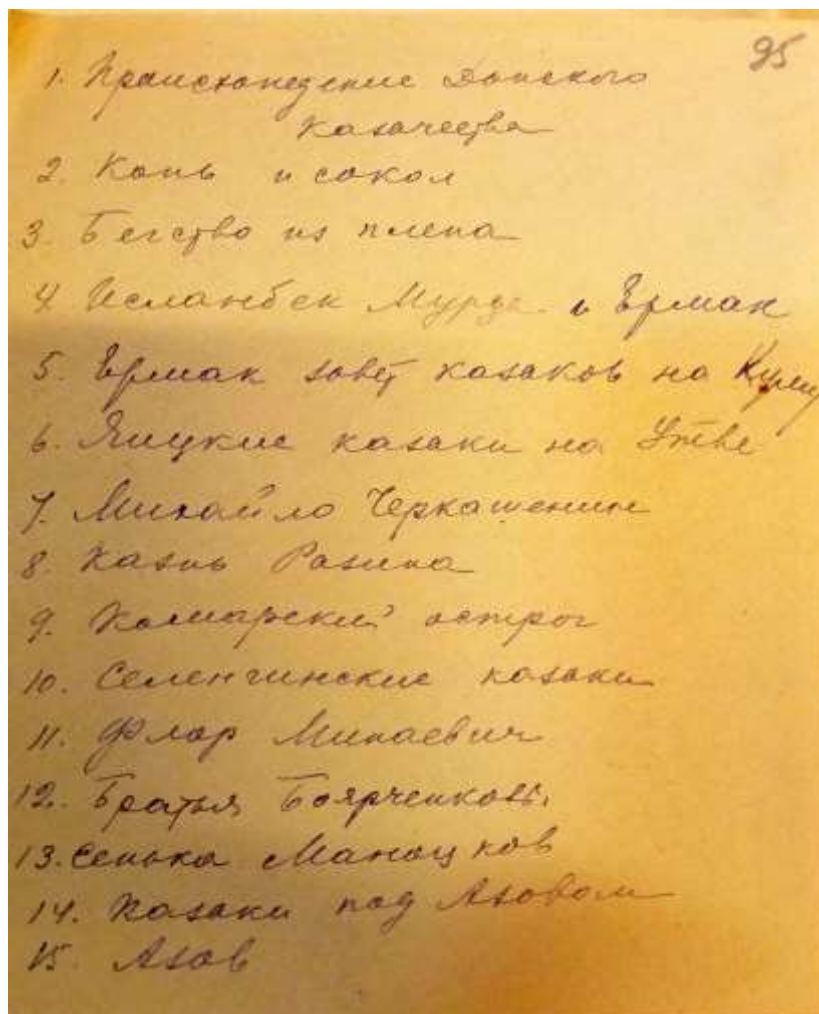 95
1. Происхождение Донского
Казачества
2. Конь и сокол
3. Бегство из плена
4. Исланбек Мурза и Ермак
5. Ермак зовет казаков на
6. Яицкие казаки на Утве
7. Михайло Черкашенин
8. Казнь Разина
9. острог
10. Селенгинские казаки
11. Флор Минаевич
12. Братья Боярченковы
13. Сенька Маноцков
14. Казаки под Азовом
15. Азов